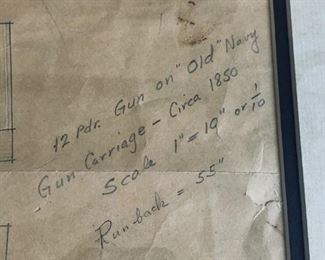 12 pdr. Gun on "Old" Navy
Gun Carriage - Circa 1850
Scale 1" = 10" or 1/10
Run-back = 55"